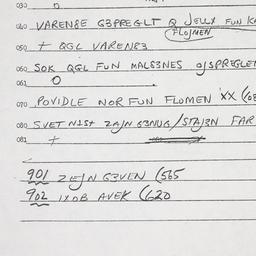 030
040 VARENGE G3PREGLT Q JELLX FUN K
FLOJMEN
050 + QGL VARENG3
060 SOK QGL FUN MALG3NES OJSPREGLE
061
070 POVIDLE NOR FUN FLOMEN XX (08
080 SVET NIST ZAJN G3NUG/STAJ3N FAR
081 +
901 ZEJN G3VEN (565
902 IXOB AVEK (620